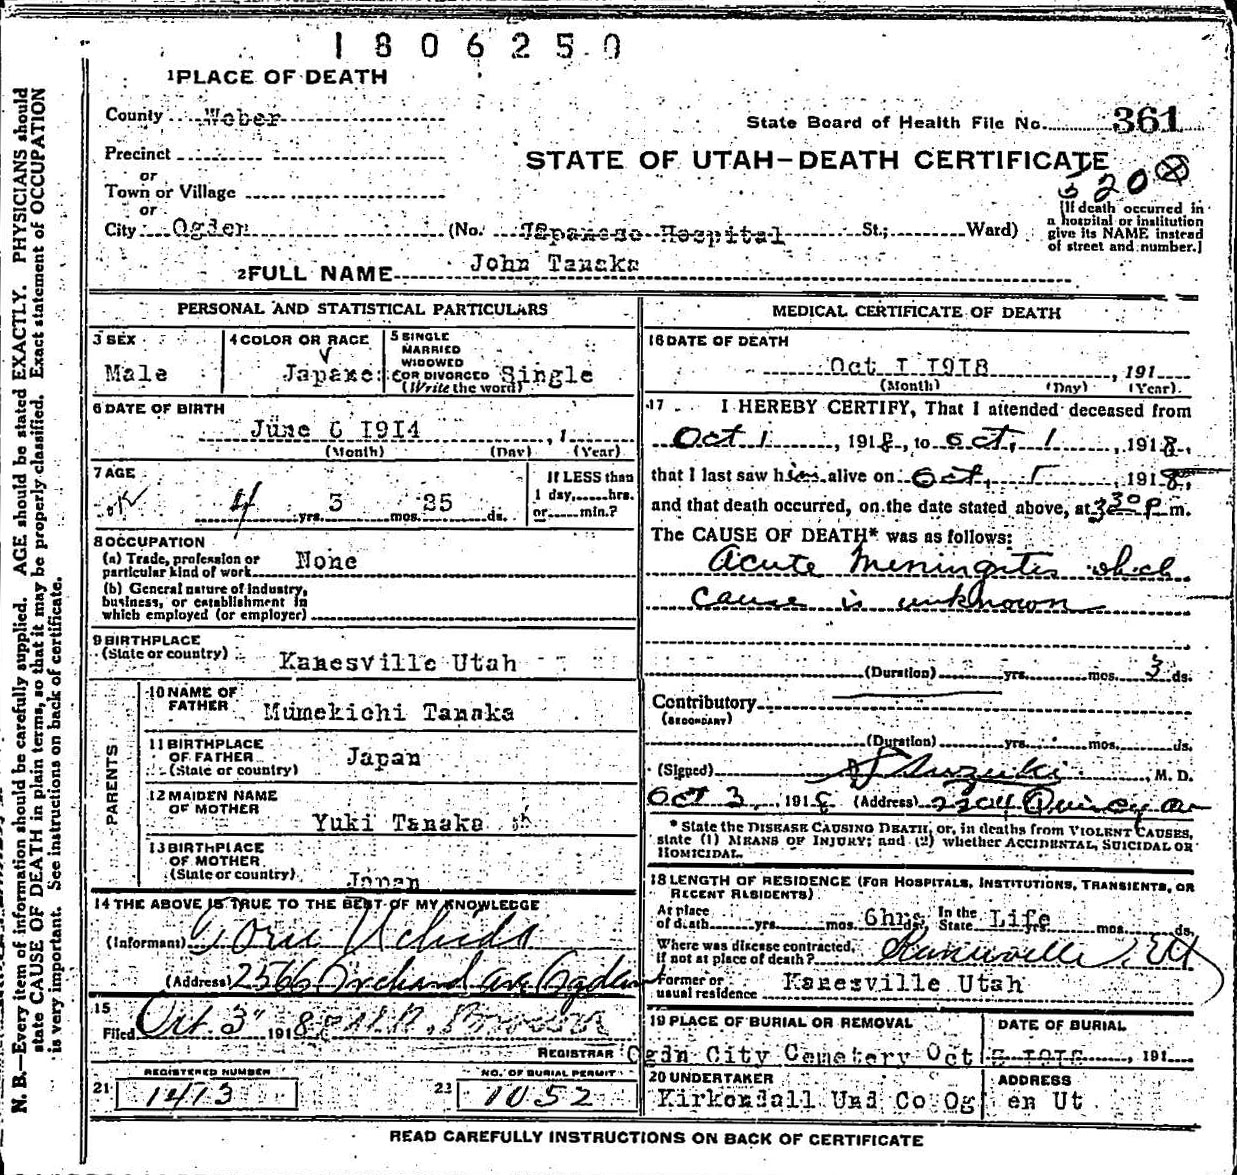 1806250
1 PLACE OF DEATH
County Weber
State Board of Health File No. 361
Precinct
STATE OF UTAH—DEATH CERTIFICATE
or
Town or Village
320
or
City Ogden (No. Japanese Hospital St.; Ward)
[If death occurred in
a hospital or institution
give its NAME instead
of street and number.]
2 FULL NAME John Tanaka
PERSONAL AND STATISTICAL PARTICULARS
3 SEX
Male
4 COLOR OR RACE
Japanes
5 SINGLE
MARRIED
WIDOWED
OR DIVORCED
(Write the word)
Single
6 DATE OF BIRTH
June 6 1914, 1
(Month) (Day) (Year)
7 AGE
4 yrs. 3 mos. 25 ds.
If LESS than
1 day, hrs.
or min.?
8 OCCUPATION
(a) Trade, profession or
particular kind of work None
(b) General nature of industry,
business, or establishment in
which employed (or employer)
9 BIRTHPLACE
(State or country) Kanesville Utah
PARENTS
10 NAME OF
FATHER Mumekichi Tanaka
11 BIRTHPLACE
OF FATHER
(State or country) Japan
12 MAIDEN NAME
OF MOTHER
Yuki Tanaka
13 BIRTHPLACE
OF MOTHER
(State or country) Japan
14 THE ABOVE IS TRUE TO THE BEST OF MY KNOWLEDGE
(Informant) Uchida
(Address) 2566 Orchard ave Ogden
15
Filed Oct. 3 1918
REGISTRAR
21 REGISTERED NUMBER
1473
22 NO. OF BURIAL PERMIT
1052
MEDICAL CERTIFICATE OF DEATH
16 DATE OF DEATH
Oct 1 1918, 191
(Month) (Day) (Year)
17 I HEREBY CERTIFY, That I attended deceased from
Oct 1, 1918, to Oct, 1, 1918,
that I last saw him alive on Oct, 1 1918,
and that death occurred, on the date stated above, at 3 30 P m.
The CAUSE OF DEATH* was as follows:
Acute Meningites which
cause is unknown
(Duration) yrs. mos. 3 ds.
Contributory
(SECONDARY)
(Duration) yrs. mos. ds.
(Signed) Suzuki, M. D.
Oct 3, 1918 (Address) Quincy av
* State the DISEASE CAUSING DEATH, or, in deaths from VIOLENT CAUSES,
state (1) MEANS OF INJURY; and (2) whether ACCIDENTAL, SUICIDAL OR
HOMICIDAL.
18 LENGTH OF RESIDENCE (FOR HOSPITALS, INSTITUTIONS, TRANSIENTS, OR
RECENT RESIDENTS)
At place
of death yrs. mos. 6hrs In the
State Life yrs. mos. ds.
Where was disease contracted,
if not at place of death?
Former or
usual residence Kanesville Utah
19 PLACE OF BURIAL OR REMOVAL
Ogdn City Cemetery
DATE OF BURIAL
Oct 1918, 191
20 UNDERTAKER
Kirkendall Und Co Og
ADDRESS
en Ut
READ CAREFULLY INSTRUCTIONS ON BACK OF CERTIFICATE
N. B.—Every item of information should be carefully supplied. AGE should be stated EXACTLY. PHYSICIANS should
state CAUSE OF DEATH in plain terms, so that it may be properly classified. Exact statement of OCCUPATION
is very important. See instructions on back of certificate.